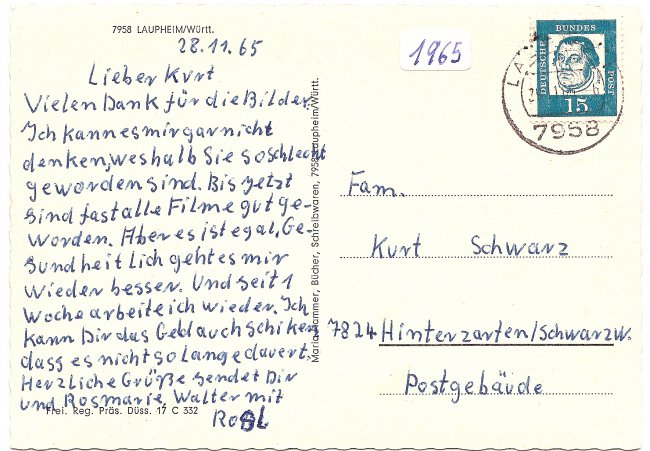 7958 LAUPHEIM/Württ.
28.11.65
Lieber Kurt
Vielen Dank für die Bilder.
Ich kann es mir gar nicht
denken, weshalb Sie so schlecht
geworden sind. Bis jetzt
sind fast alle Filme gut ge-
worden. Aber es ist egal, Ge-
sundheitlich geht es mir
wieder besser. Und seit 1
Woche arbeite ich wieder. Ich
kann Dir das Geld auch schiken
dass es nicht so lange dauert.
Herzliche Grüße sendet Dir
und Rosmarie, Walter mit
Rosl
Frei. Reg. Präs. Düss. 17 C 332
Maria Hammer, Bücher, Schreibwaren, 7958 Laupheim/Württ.
1965
DEUTSCHE
BUNDES
POST
15
7958
Fam.
Kurt Schwarz
7824 Hinterzarten/Schwarzw.
Postgebäude